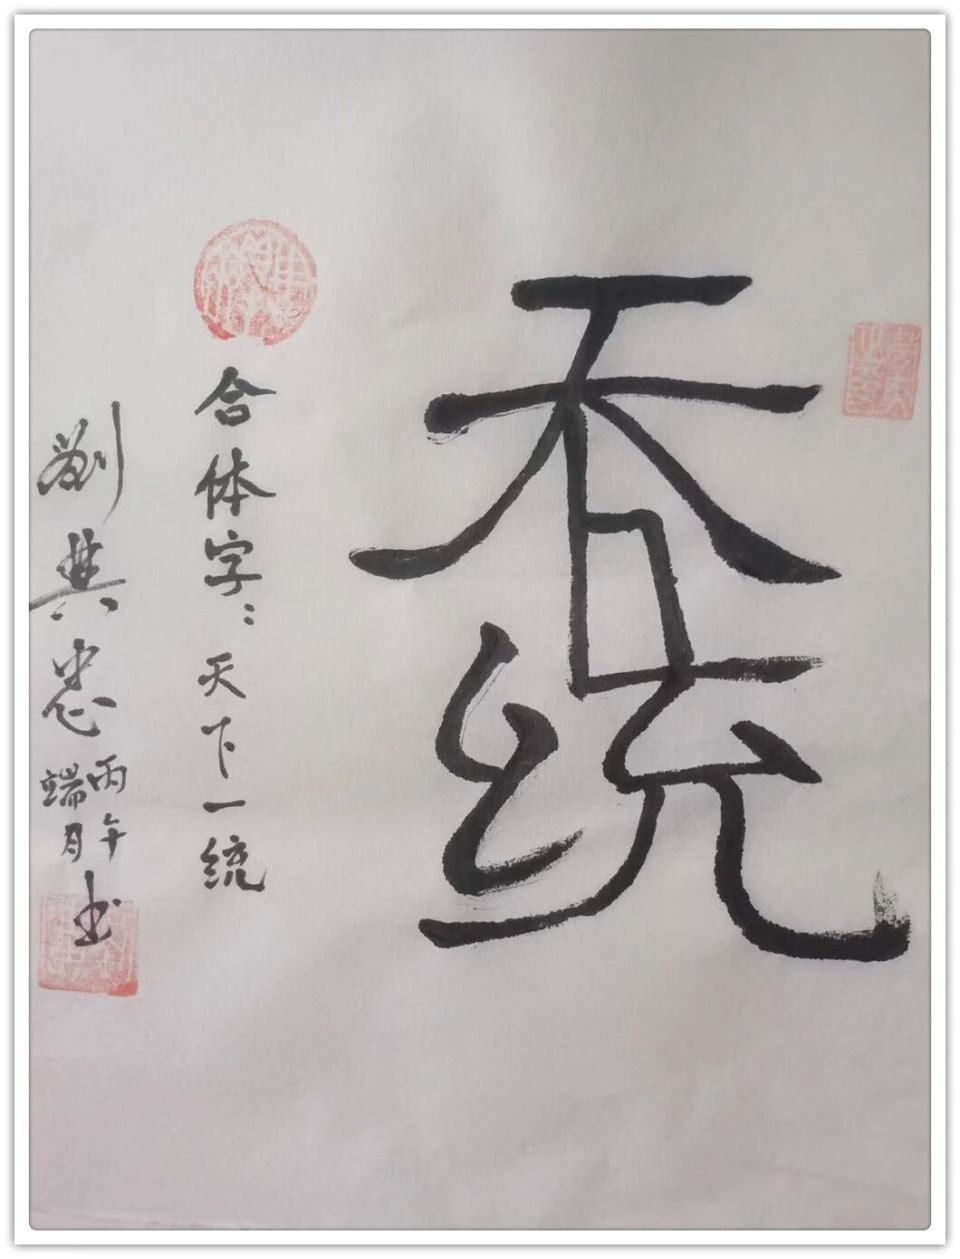 天下一统
合体字：天下一统
劉典忠 丙午端月书